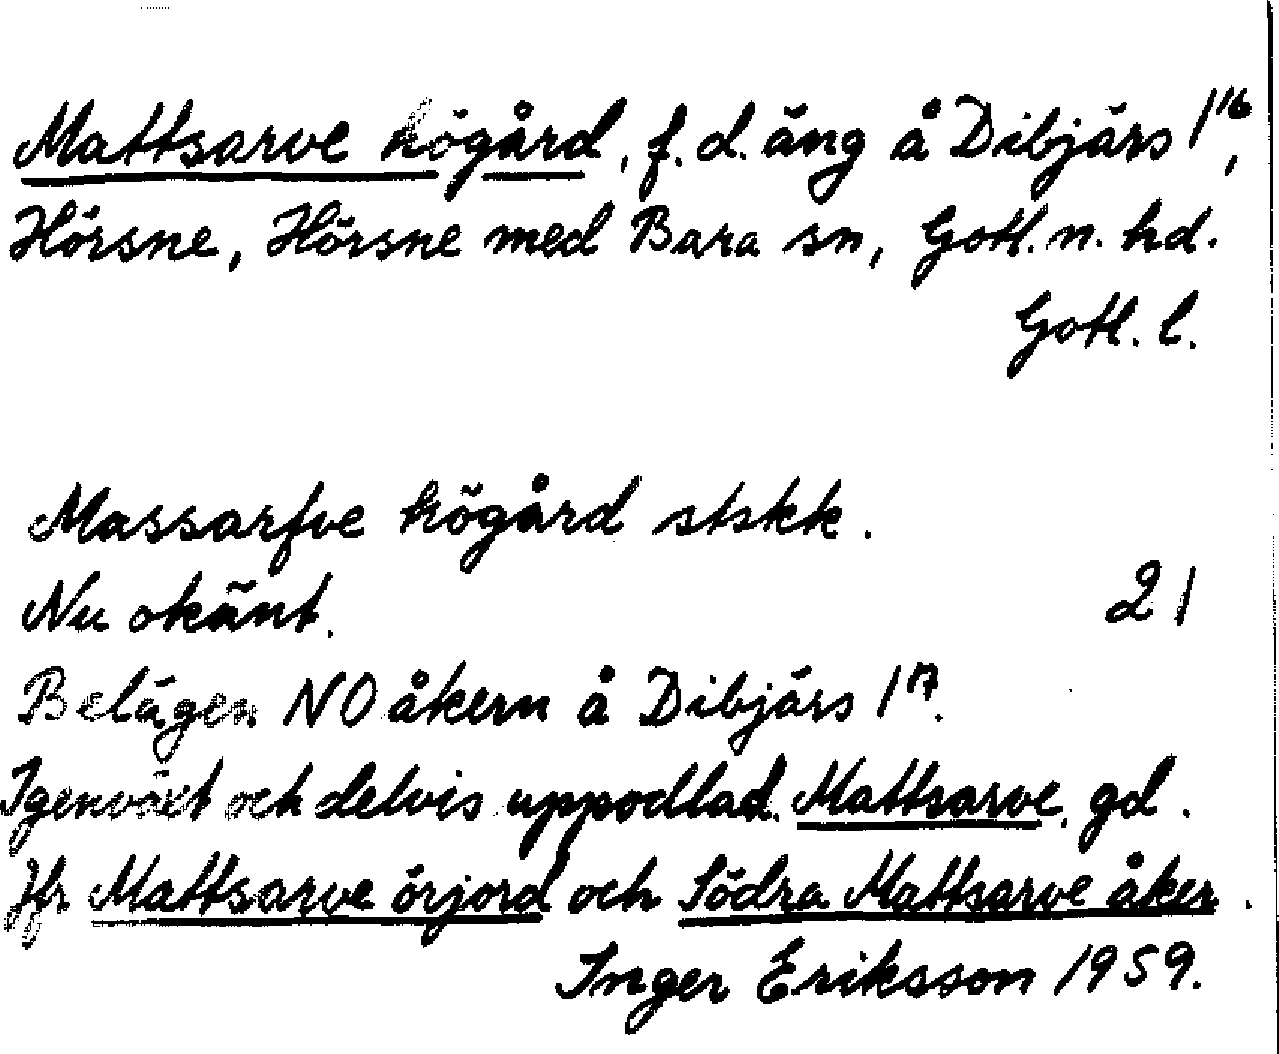 Mattsarve högård, f.d. äng å Dibjärs 1¹⁶,
Hörsne, Hörsne med Bara sn, Gotl. n. hd.
Gotl. l.
Massarfve högård stskk.
Nu okänt. 21
Belägen NO åkern å Dibjärs 1¹⁷.
Igenväxt och delvis uppodlad. Mattsarve, gd.
Jfr Mattsarve örjord och Södra Mattsarve åker.
Inger Eriksson 1959.